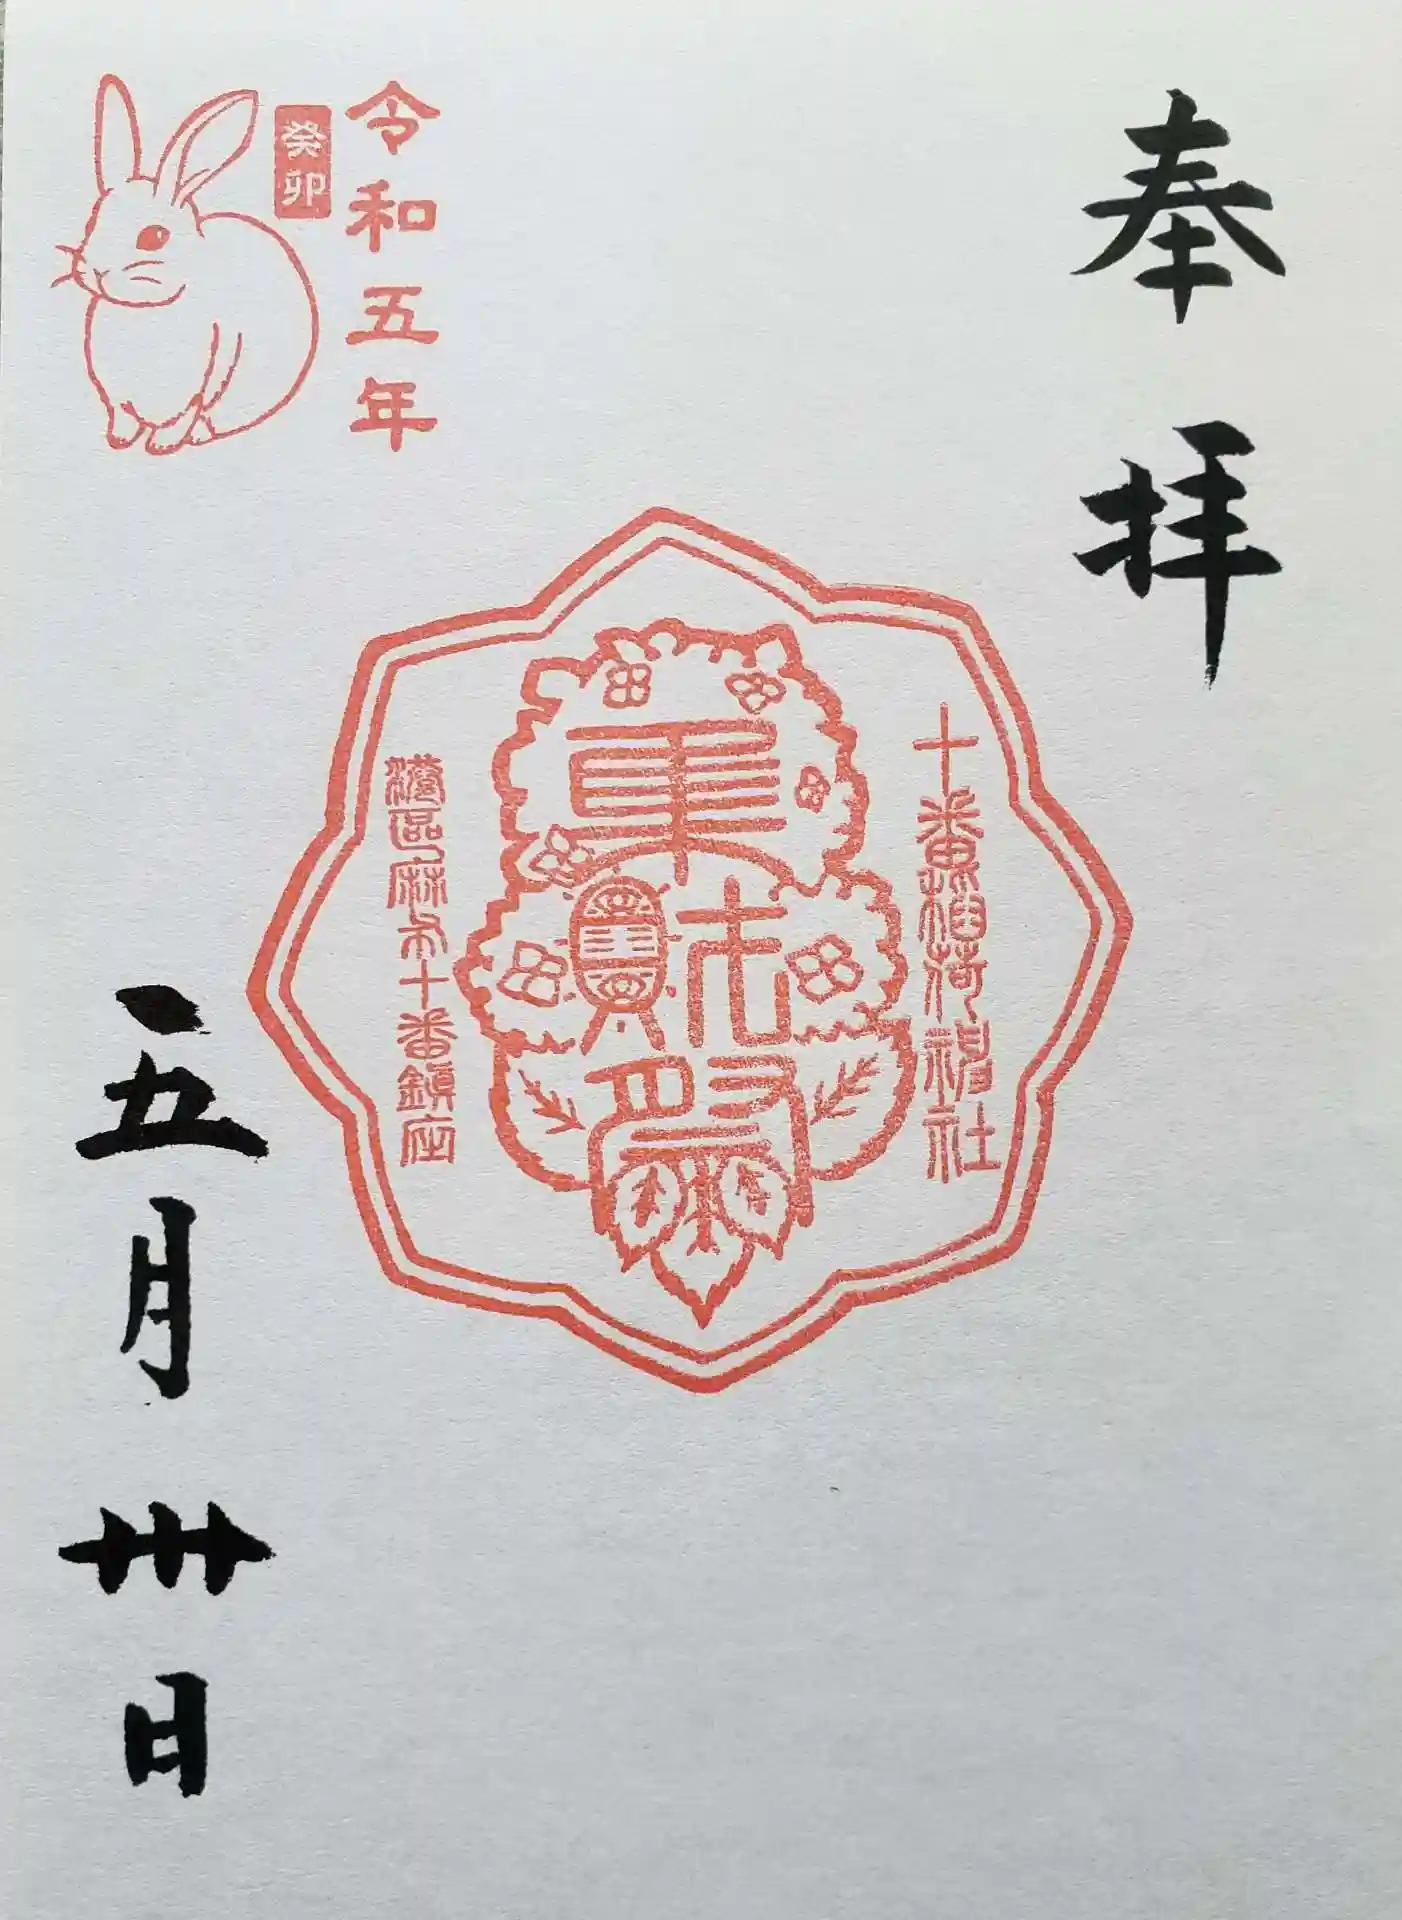 奉拝
十番稲荷神社
港區麻布十番鎮座
令和五年
癸卯
五月卅日